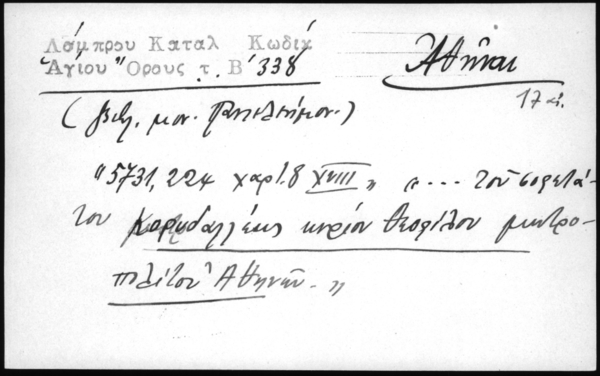 Λάμπρου Καταλ Κωδικ
Ἁγίου Ὄρους τ. Β΄ 338
Ἀθῆναι
17 αἰ.
(βιβ. μον. Παντελεήμον.)
"5731, 224 χαρτ. 8 XVIII" "... τοῦ σοφωτά-
του Κορυδαλλέως κυρίου Θεοφίλου μητρο-
πολίτου Ἀθηνῶν. "